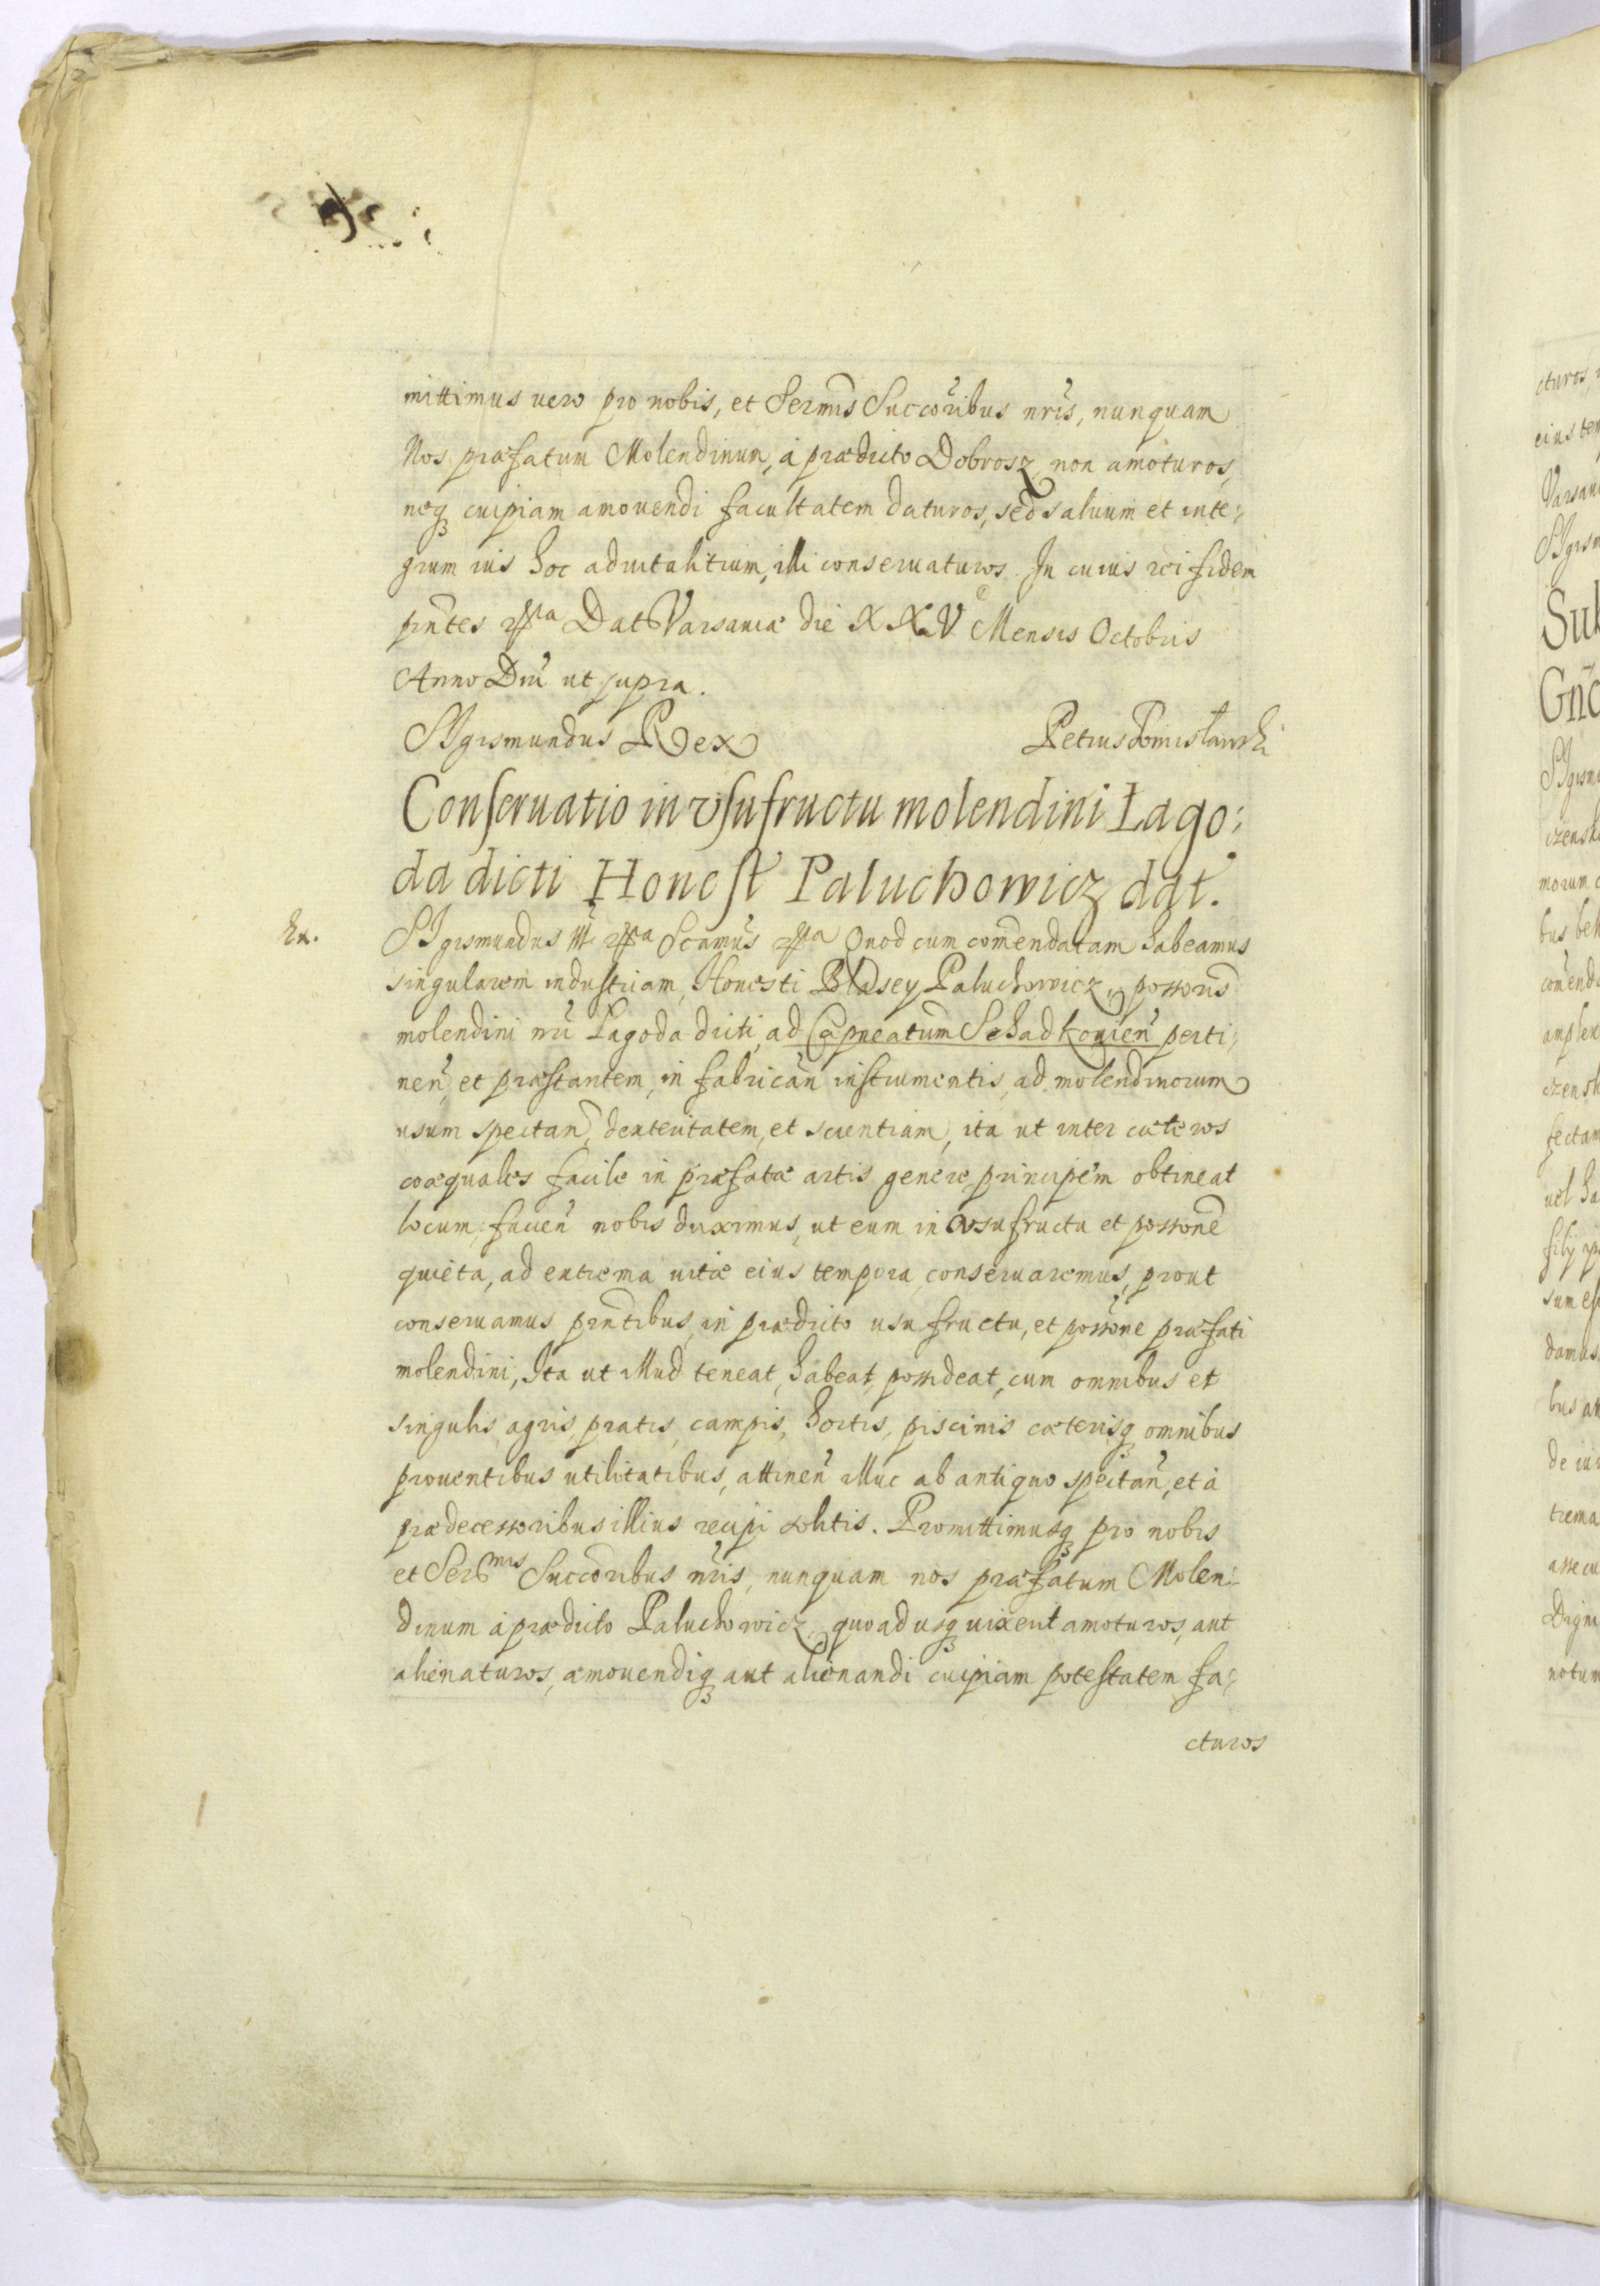 mittimus uero pro nobis, et Sermis Succoribus nris, nunquam
Nos præfatum Molendinum, à prædicto Dobrosz non amoturos,
neq cuipiam amouendi facultatem daturos, sed saluum et inte:
grum ius hoc aduitalitium, illi conseruaturos. In cuius rei fidem
pntes Dat Varsauiæ die XXV Mensis Octobris
Anno Dni ut supra.
SIgismundus Rex
Petrus Tomisławski
Conseruatio in vsufructu molendini Lago:
da dicti Honest Paluchowicz dat.
Ex.
SIgismundus III Scamus Quod cum comendatam habeamus
singularem industriam, Honesti Blasey Paluchowicz, possoris
molendini nri Lagoda dicti, ad Capneatum Schadkouien perti:
nen, et præstantem, in fabrican instrumentis, ad molendinorum
usum spectan, dexteritatem, et scientiam, ita ut inter cæteros
coæquales facile in præfatæ artis genere, principem obtineat
locum, facien nobis duximus, ut eum in vsufructu et possone
quieta, ad extrema uitæ eius tempora, conseruaremus, prout
conseruamus pntibus, in prædicto usu fructu, et possone præfati
molendini, Ita ut illud teneat, habeat, possideat, cum omnibus et
singulis, agris, pratis, campis, hortis, piscinis cæterisq omnibus
prouentibus utilitatibus, attinen illuc ab antiquo spectan, et à
prædecessoribus illius recipi solitis. Promittimusq pro nobis
et Sermis Succoribus nris, nunquam nos præfatum Molen:
dinum à prædicto Paluchowicz, quoad usq uixerit amoturos, aut
alienaturos, amouendiq aut alienandi cuipiam potestatem fa:
cturos